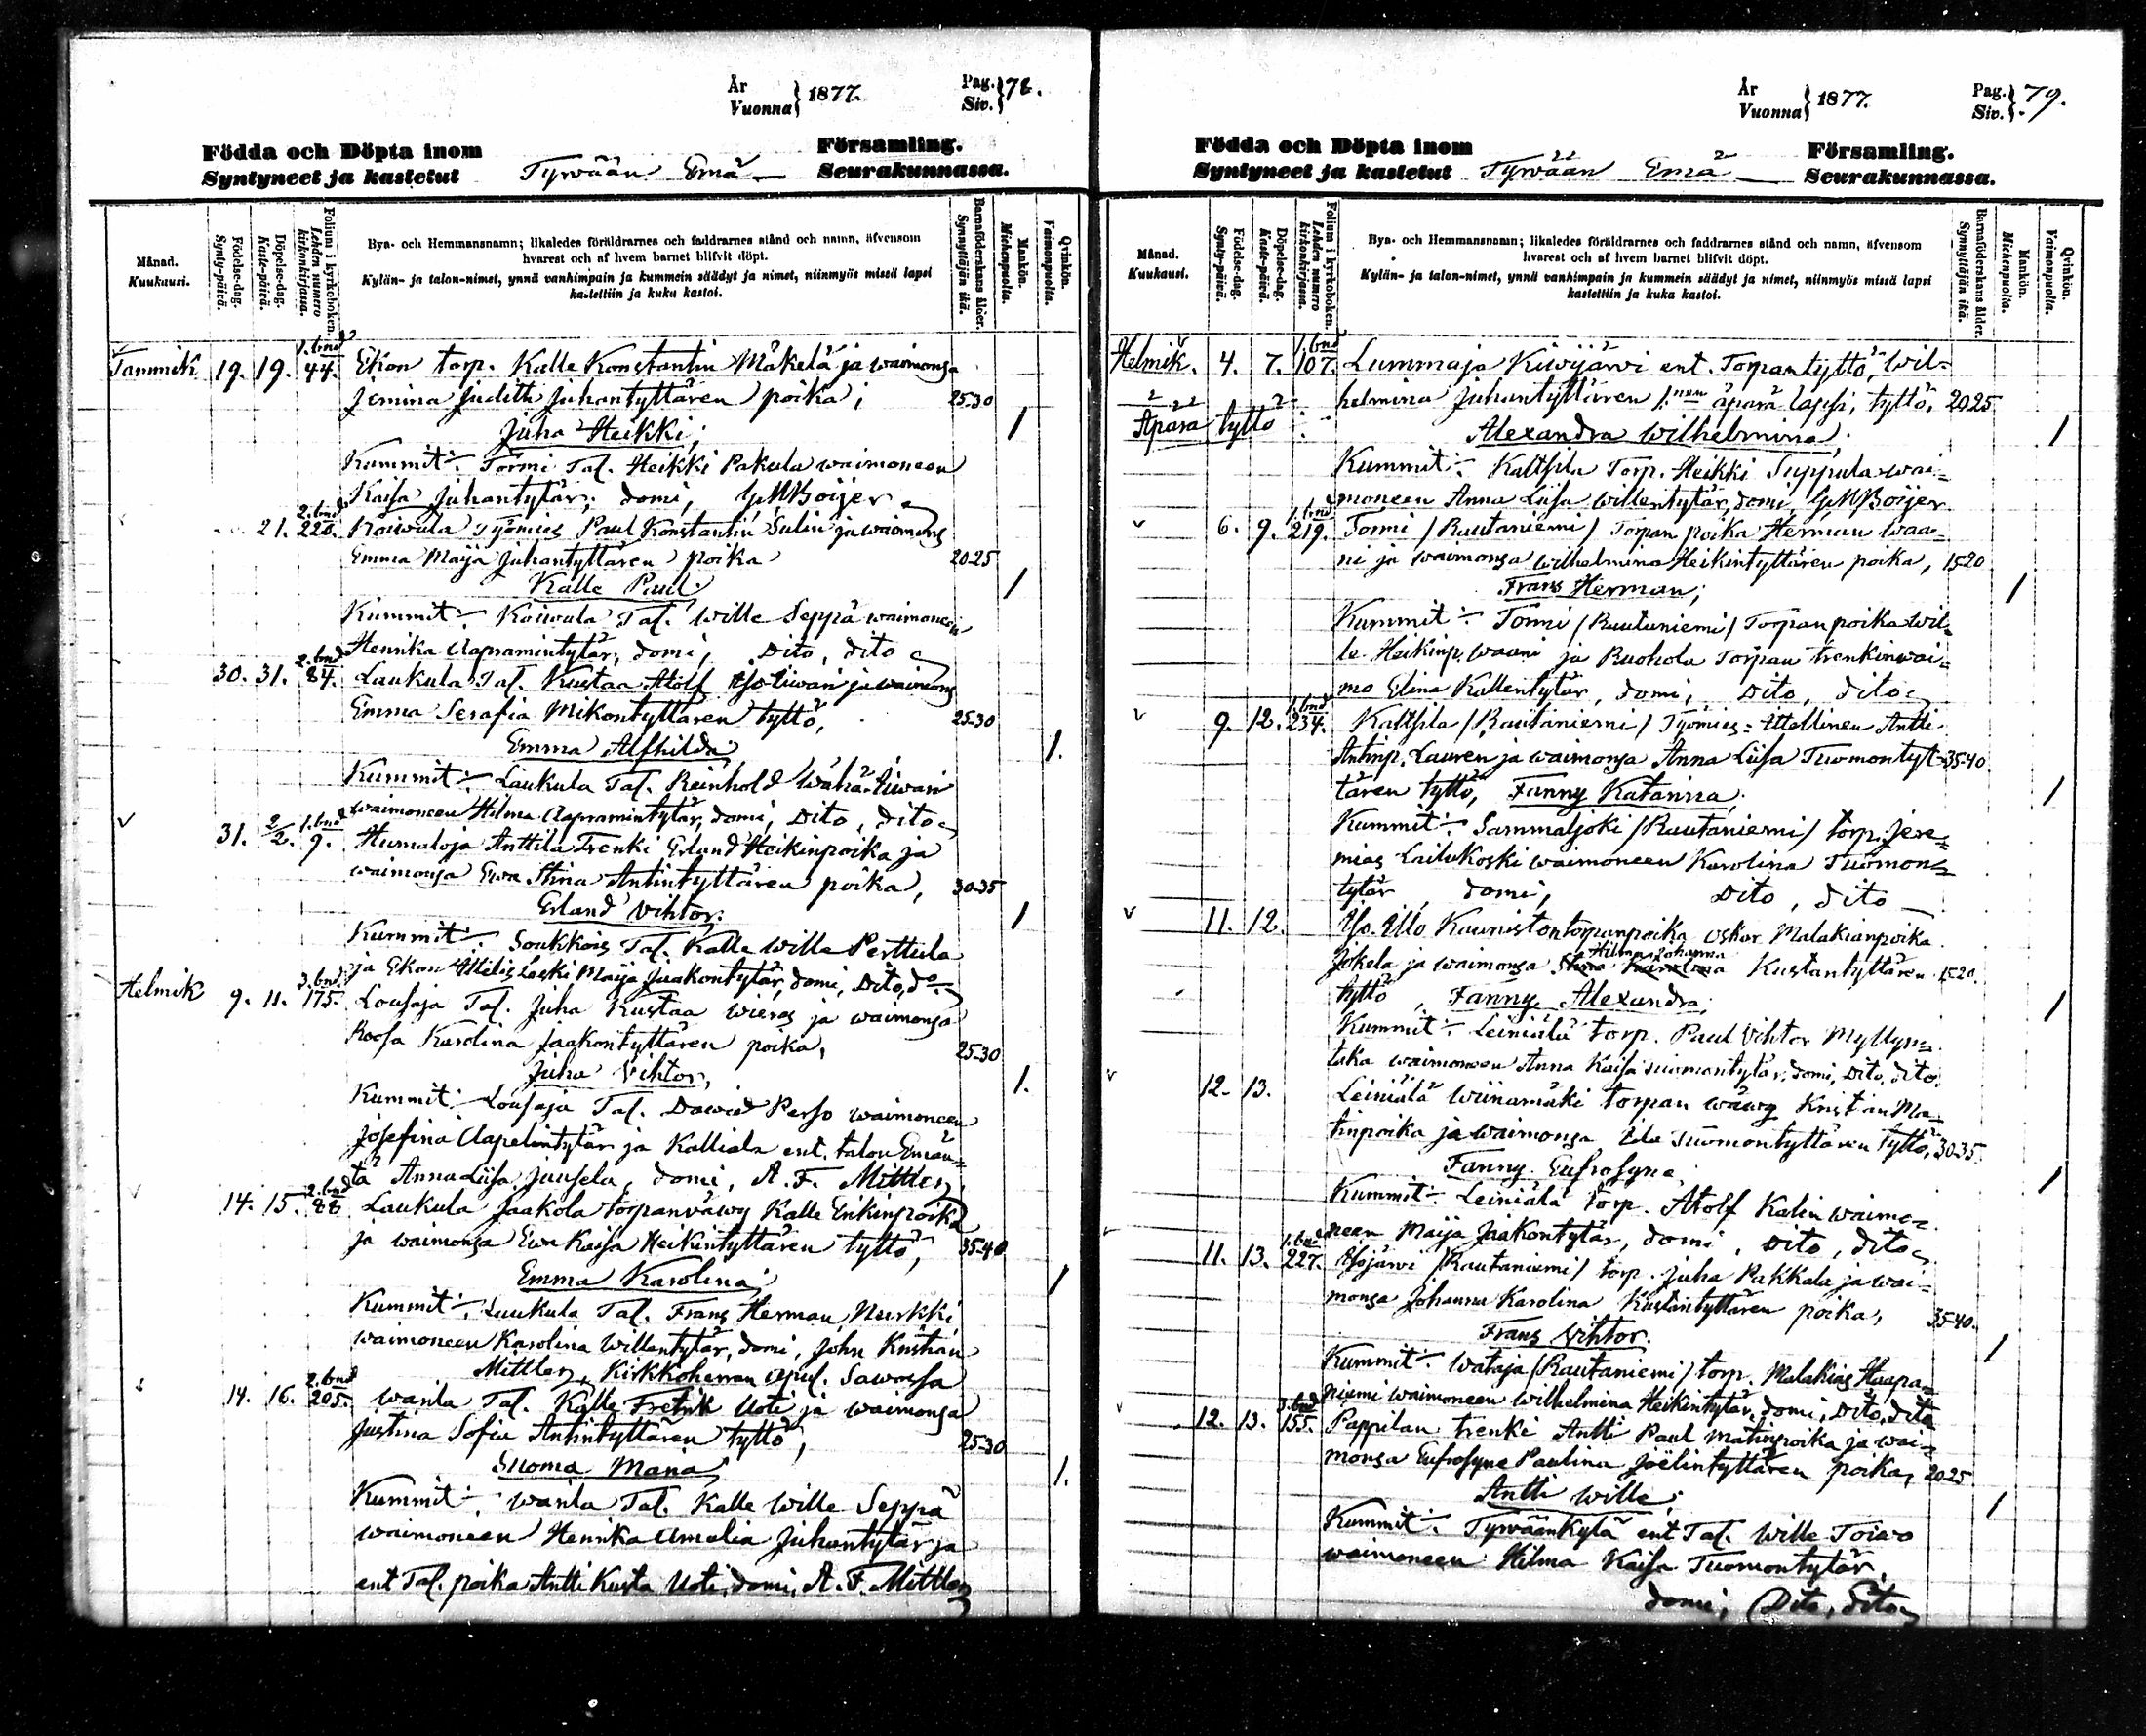 År
Vuonna} 1877.
Pag.
Siv.} 78.
Födda och Döpta inom
Syntyneet ja kastetut
Tyrvään Emä
Församling.
Seurakunnassa.
Månad.
Kuukausi.
Födelse-dag.
Synty-päivä.
Döpelse-dag.
Kaste-päivä.
Folium i kyrkoboken.
Lehden numero kirkonkirjassa.
Bya- och Hemmansnamn; likaledes föräldrarnes och faddrarnes stånd och namn, äfvensom
hvarest och af hvem barnet blifvit döpt.
Kylän- ja talon-nimet, ynnä vanhimpain ja kummein säädyt ja nimet, niinmyös missä lapsi
kastettiin ja kuka kastoi.
Barnaföderskans ålder.
Synnyttäjän ikä.
Mankön.
Miehenpuolia.
Qvinkön.
Vaimonpuolia.
Tammik 19. 19. 1. bnd 44. Ekon torp. Kalle Konstantin Mäkelä ja waimonsa
Jemina Judith Juhantyttären poika; 25-30
Juha Heikki; 1
Kummit:- Tormi Tal. Heikki Pakula waimoneen
Kaisa Juhantytär; domi, G.M.Boijer
21. 2. bnd 220. Työmies Paul Konstantin Sulin ja waimons
Emma Maija Juhantyttären poika 20-25
Kalle Paul 1
Kummit:- Tal. Wille Seppä waimoneen
Henrika Aapramintytär; domi, Dito, dito
30. 31. 2. bnd 84. Laukula Tal. Kustaa Atolf Iso Liwari ja waimons
Emma Serafia Mikontyttären tyttö, 25-30
Emma Alfhilda 1.
Kummit:- Laukula Tal. Reinhold Wähä-Liwari
waimoneen Hilma Aapramintytär, domi, Dito, dito
31. 2/2. 1. bnd 9. Humaloja Anttila Trenki Erland Heikinpoika ja
waimonsa Ewa Stina Antintyttären poika, 30-35
Erland Vihtor. 1
Kummit:- Soukkois Tal. Kalle Wille Perttula
ja Ekon Leski Maija Jaakontytär, domi, Dito, do
Helmik 9. 11. 3. bnd 175. Lousaja Tal. Juha Kustaa Wieras ja waimonsa
Roosa Karolina Jaakontyttären poika, 25-30
Juha Vihtor, 1.
Kummit:- Lousaja Tal. Dawid Perso waimoneen
Josefina Aapelintytär ja Kalliala ent. talon Emän-
tä Anna Liisa Juusela, domi, A. F. Mittler,
14. 15. 2. bnd 88 Laukula Jaakola torpanväwy Kalle Erikinpoika
ja waimonsa Ewa Kaisa Heikintyttären tyttö, 35-40
Emma Karolina, 1
Kummit:- Laukula Tal. Frans Herman Nurkki
waimoneen Karolina Willentytär, domi, John Kristian
Mittler, Kirkkoherran apul. Sawossa
14. 16. 2. bnd 205. Warila Tal. Kalle Fretrik Uoti ja waimonsa
Justina Sofia Antintyttären tyttö, 25-30
Suoma Maria 1.
Kummit:- Warila Tal. Kalle Wille Seppä
waimoneen Henrika Amalia Juhantytär ja
ent Tal. poika Antti Kusta Uoti, domi, A. F. Mittler
År
Vuonna} 1877.
Pag.
Siv.} 79.
Födda och Döpta inom
Syntyneet ja kastetut
Tyrvään Emä
Församling.
Seurakunnassa.
Månad.
Kuukausi.
Födelse-dag.
Synty-päivä.
Döpelse-dag.
Kaste-päivä.
Folium i kyrkoboken.
Lehden numero kirkonkirjassa.
Bya- och Hemmansnamn; likaledes föräldrarnes och faddrarnes stånd och namn, äfvensom
hvarest och af hvem barnet blifvit döpt.
Kylän- ja talon-nimet, ynnä vanhimpain ja kummein säädyt ja nimet, niinmyös missä lapsi
kastettiin ja kuka kastoi.
Barnaföderskans ålder.
Synnyttäjän ikä.
Mankön.
Miehenpuolia.
Qvinkön.
Vaimonpuolia.
Helmik. 4. 7. 1. bnd 107. Lummaja Kiwijärwi ent. Torpantyttö, Wil-
helmina Juhantyttären 1:nen äpärä lapsi, tyttö, 20-25
Äpärä tyttö Alexandra Wilhelmina; 1
Kummit:- Kaltsila Torp. Heikki Suppula wai-
moneen Anna Liisa Willentytär, domi, G.M.Boijer
6. 9. 1. bnd 219. Tormi /Rautaniemi/ Torpan poika Herman Waa-
ni ja waimonsa Wilhelmina Heikintyttären poika, 15-20
Frans Herman; 1
Kummit:- Tormi /Rautaniemi/ Torpan poika Wil-
le Heikinp. Waani ja Ruohola Torpan trenkinwai-
mo Elina Kallentytär, domi, Dito, dito
9. 12. 1. bnd 234. Kaltsila /Rautaniemi/ Työmies Antti
Antinp. Lauren ja waimonsa Anna Liisa Tuomontyt- 35-40
tären tyttö, Fanny Katarina, 1
Kummit:- Sammaljoki /Rautaniemi/ torp. Jere-
mias Lailukoski waimoneen Karolina Tuomon-
tytär domi, Dito, dito
11. 12. Iso Allo Kauniston torpanpoika Oskar Malakianpoika
Jokela ja waimonsa Hilma Johanna Kustantyttären 15-20.
tyttö, Fanny Alexandra; 1
Kummit:- Leiniälä torp. Paul Vihtor Myllyn-
taka waimoneen Anna Kaisa Tuomontytär, domi, Dito, dito.
12. 13. Leiniälä Wiinamäki torpan wäwy Kristian Ma-
tinpoika ja waimonsa Eda Tuomontyttären tyttö, 30-35
Fanny Eufrosyne, 1
Kummit:- Leiniälä torp. Atolf Kalin waimo-
neen Maija Jaakontytär, domi, Dito, dito
11. 13. 1. bnd 227. Isojärwi /Rautaniemi/ torp. Juha Pakkala ja wai-
monsa Johanna Karolina Kustantyttären poika, 35-40.
Frans Vihtor. 1
Kummit:- Wataja /Rautaniemi/ torp. Malakias Haapa-
niemi waimoneen Wilhelmina Heikintytär, domi, Dito, dito
12. 13. 3. bnd 155. Pappilan trenki Antti Paul Matinpoika ja wai-
monsa Eufrosyne Paulina Joëlintyttären poika, 20-25
Antti Wille; 1
Kummit:- Tyrväänkylä ent Tal. Wille Toiwo
waimoneen Hilma Kaisa Tuomontytär,
domi, Dito, dito